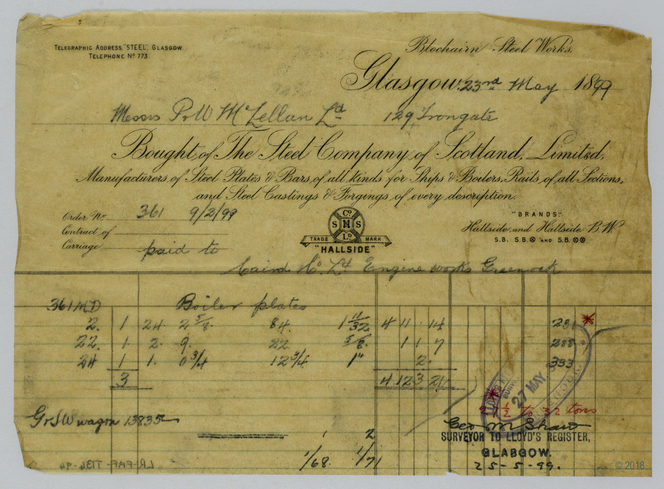 Blochairn Steel Works.
TELEGRAPHIC ADDRESS "STEEL", GLASGOW.
TELEPHONE No 773
Glasgow, 23rd May 1899
Messrs P & W McLellan Ld 129 Trongate
Bought of The Steel Company of Scotland, Limited,
Manufacturers of Steel Plates & Bars of all kinds for Ships & Boilers, Rails of all Sections,
and Steel Castings & Forgings of every description.
Order No. 361 9/2/99
Contract of
Carriage paid to
Co
S H S
Ld
TRADE MARK
"HALLSIDE"
"BRANDS:"
Hallside and Hallside B.W.
S.B. S.B. AND S.B.
Caird & Co Ld Engine works Greenock
361 Boiler plates
2. 1 24 2 5/8 84. 1 11/32 4 11 14
22. 1 2. 9. 22 1 1 7
24 1 1. 0 3/4 12 3/4 1" 2. 333
3 4 12 3 21
27 MAY
32 tons
G & SW wagon 13835
Geo M Shaw
SURVEYOR TO LLOYD'S REGISTER,
GLASGOW.
25-5-99.
1 2
1/68. 1/71
LR-FAF-T134-94
© 2018